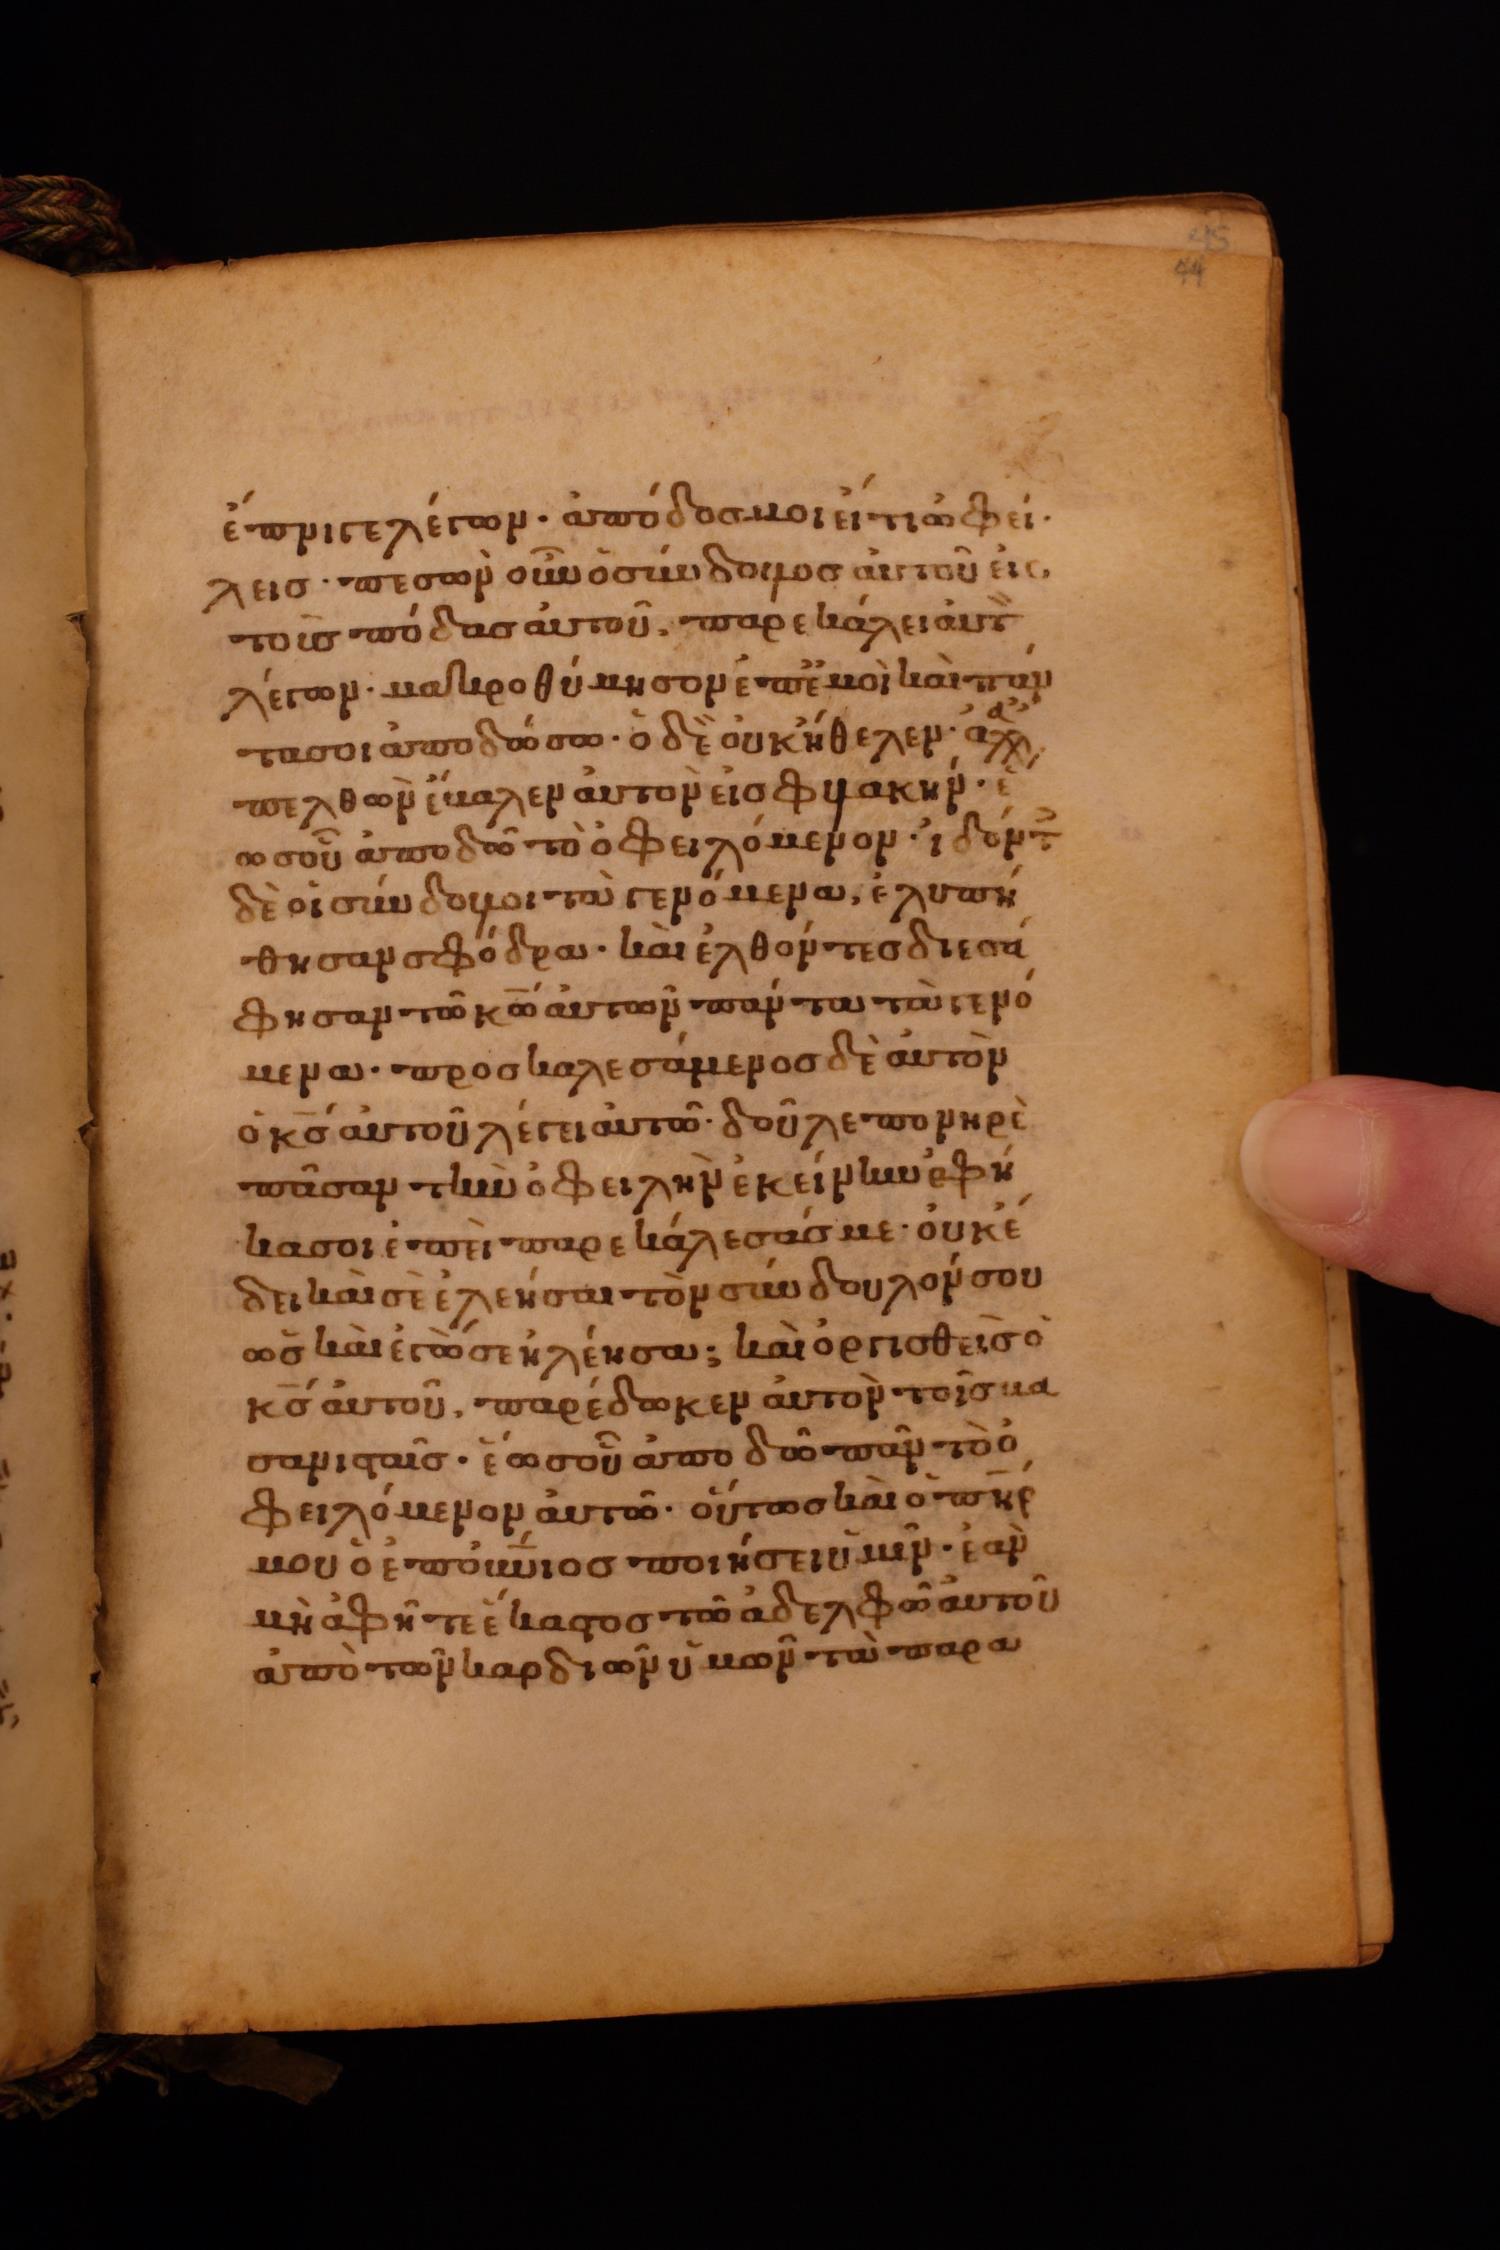 45
44
ἔπνιγε λέγων· ἀπόδοσ μοι εἴ τι ὀφεί·
λεισ· πεσὼν οὖν ὁ σύνδουλοσ αὐτοῦ εἰσ
τοὺσ πόδασ αὐτοῦ, παρεκάλει αὐτ
λέγων· μακροθύμησον ἐπ ἐμοὶ καὶ πάν
τα σοι ἀποδώσω· ὁ δὲ οὐκ ἤθελεν· ἀλλ
πελθὼν ἔβαλεν αὐτὸν εἰσ φυλακήν· ἕ
ωσ οὗ ἀποδῶ τὸ ὀφειλόμενον· ἰδόντ
δὲ οἱ σύνδουλοι τὰ γενόμενα, ἐλυπή
θησαν σφόδρα· καὶ ἐλθόντεσ διεσά
φησαν τῶ κω̅ αὐτῶν πάντα τὰ γενό
μενα· προσκαλεσάμενοσ δὲ αὐτὸν
ὁ κσ̅ αὐτοῦ λέγει αὐτῶ· δοῦλε πονηρὲ
πᾶσαν τὴν ὀφειλὴν ἐκείνην ἀφῆ
κα σοι ἐπεὶ παρεκάλεσάσ με· οὐκ ἔ
δει καὶ σὲ ἐλεῆσαι τὸν σύνδουλόν σου
ὡσ καὶ ἐγώ σε ἠλέησα; καὶ ὀργισθεὶσ ὁ
κσ̅ αὐτοῦ, παρέδωκεν αὐτὸν τοῖσ βα
σανισταῖσ· ἕωσ οὗ ἀποδῶ πᾶν τὸ ὀ
φειλόμενον αὐτῶ· οὕτωσ καὶ ὁ πη̅ρ
μου ὁ ἐπουν̅ιοσ ποιήσει ὑμῖν· ἐὰν
μὴ ἀφῆτε ἕκαστοσ τῶ ἀδελφῶ αὐτοῦ
ἀπὸ τῶν καρδιῶν ὑμῶν τὰ παρα